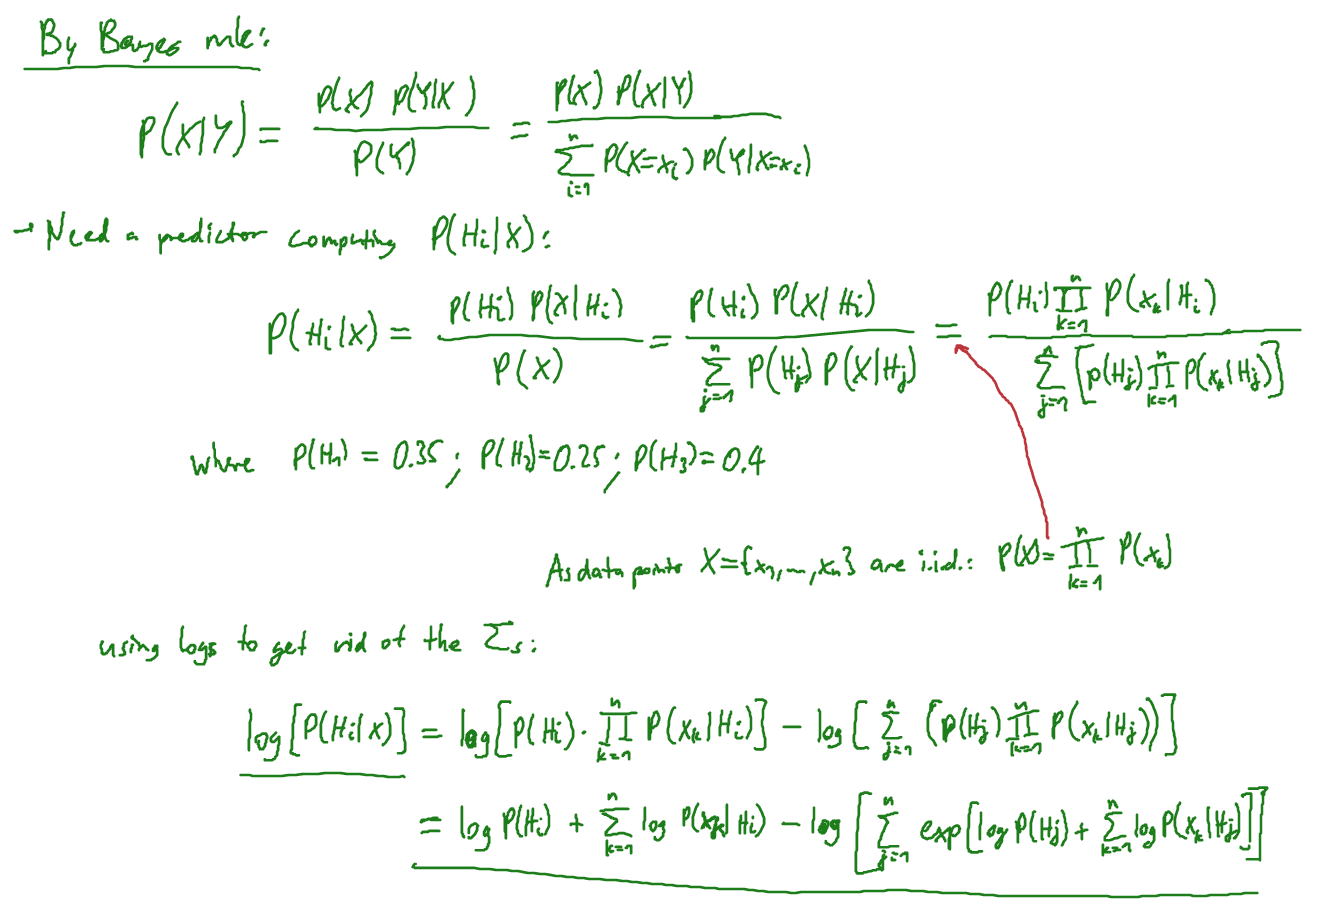 By Bayes rule:
P(X|Y) = \frac{P(X) P(Y|X)}{P(Y)} = \frac{P(X) P(X|Y)}{\sum_{i=1}^{n} P(X=x_i) P(Y|X=x_i)}
→ Need a predictor computing P(H_i|X):
P(H_i|X) = \frac{P(H_i) P(X|H_i)}{P(X)} = \frac{P(H_i) P(X|H_i)}{\sum_{j=1}^{n} P(H_j) P(X|H_j)} = \frac{P(H_i) \prod_{k=1}^{n} P(x_k|H_i)}{\sum_{j=1}^{n} [P(H_j) \prod_{k=1}^{n} P(x_k|H_j)]}
where P(H_1) = 0.35 ; P(H_2)=0.25 ; P(H_3)=0.4
As data points X={x_1,...,x_n} are i.i.d.: P(X)= \prod_{k=1}^{n} P(x_k)
using logs to get rid of the Σs:
log[P(H_i|X)] = log[P(H_i) · \prod_{k=1}^{n} P(x_k|H_i)] − log[\sum_{j=1}^{n} (P(H_j) \prod_{k=1}^{n} P(x_k|H_j))]
= log P(H_i) + \sum_{k=1}^{n} log P(x_k|H_i) − log[\sum_{j=1}^{n} exp[log P(H_j) + \sum_{k=1}^{n} log P(x_k|H_j)]]